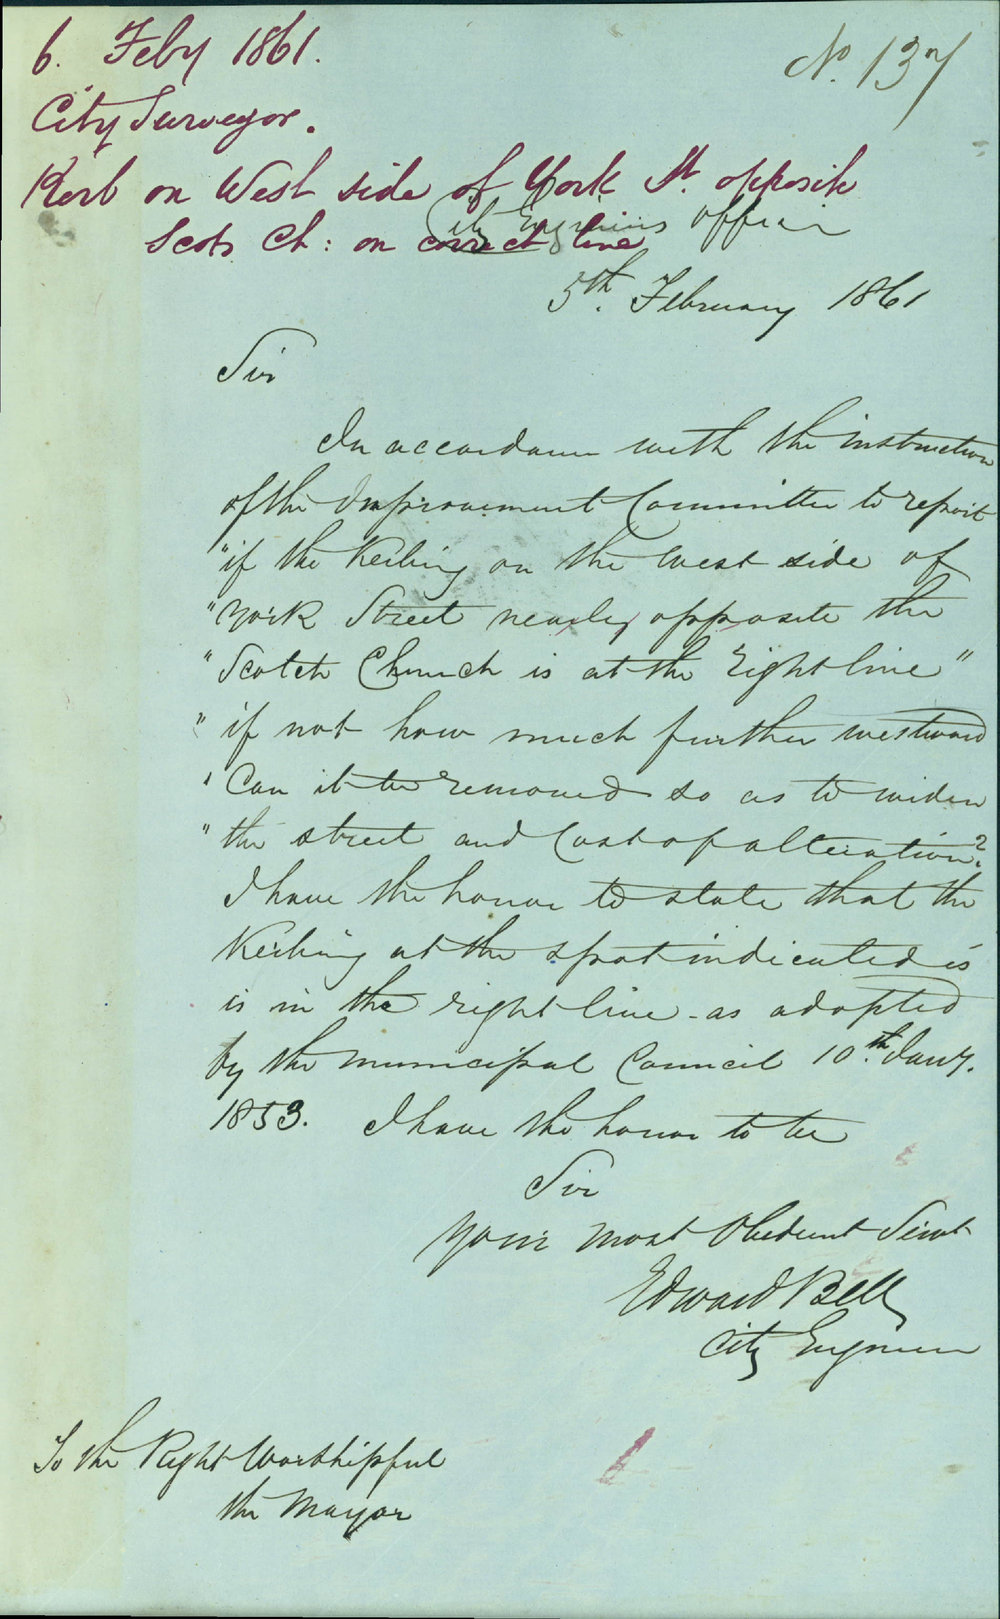 6. Feby 1861.
No. 137
City Surveyor.
Kerb on West side of York St. opposite
Scots Ch: on correct line
City Engineers Office
5th. February 1861
Sir
In accordance with the instruction
of the Improvement Committee to report
"if the Kerbing on the west side of
"York Street nearly opposite the
"Scotch Church is at the right line"
"if not how much further westward
"Can it be removed so as to widen
"the street and Cost of alteration?
I have the honor to state that the
Kerbing at the spot indicated is
is in the right line - as adopted
by the Municipal Council 10.th Jany.
1853. I have the honor to be
Sir
Your most Obedient Servt
Edward Bell
City Engineer
To the Right Worshipful
the Mayor